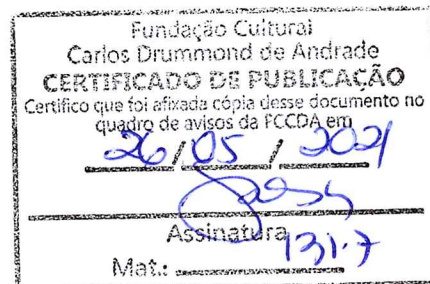 Fundação Cultural
Carlos Drummond de Andrade
CERTIFICADO DE PUBLICAÇÃO
Certifico que foi afixada cópia desse documento no
quadro de avisos da FCCDA em
26/05/2021
Assinatura
131.7
Mat.: